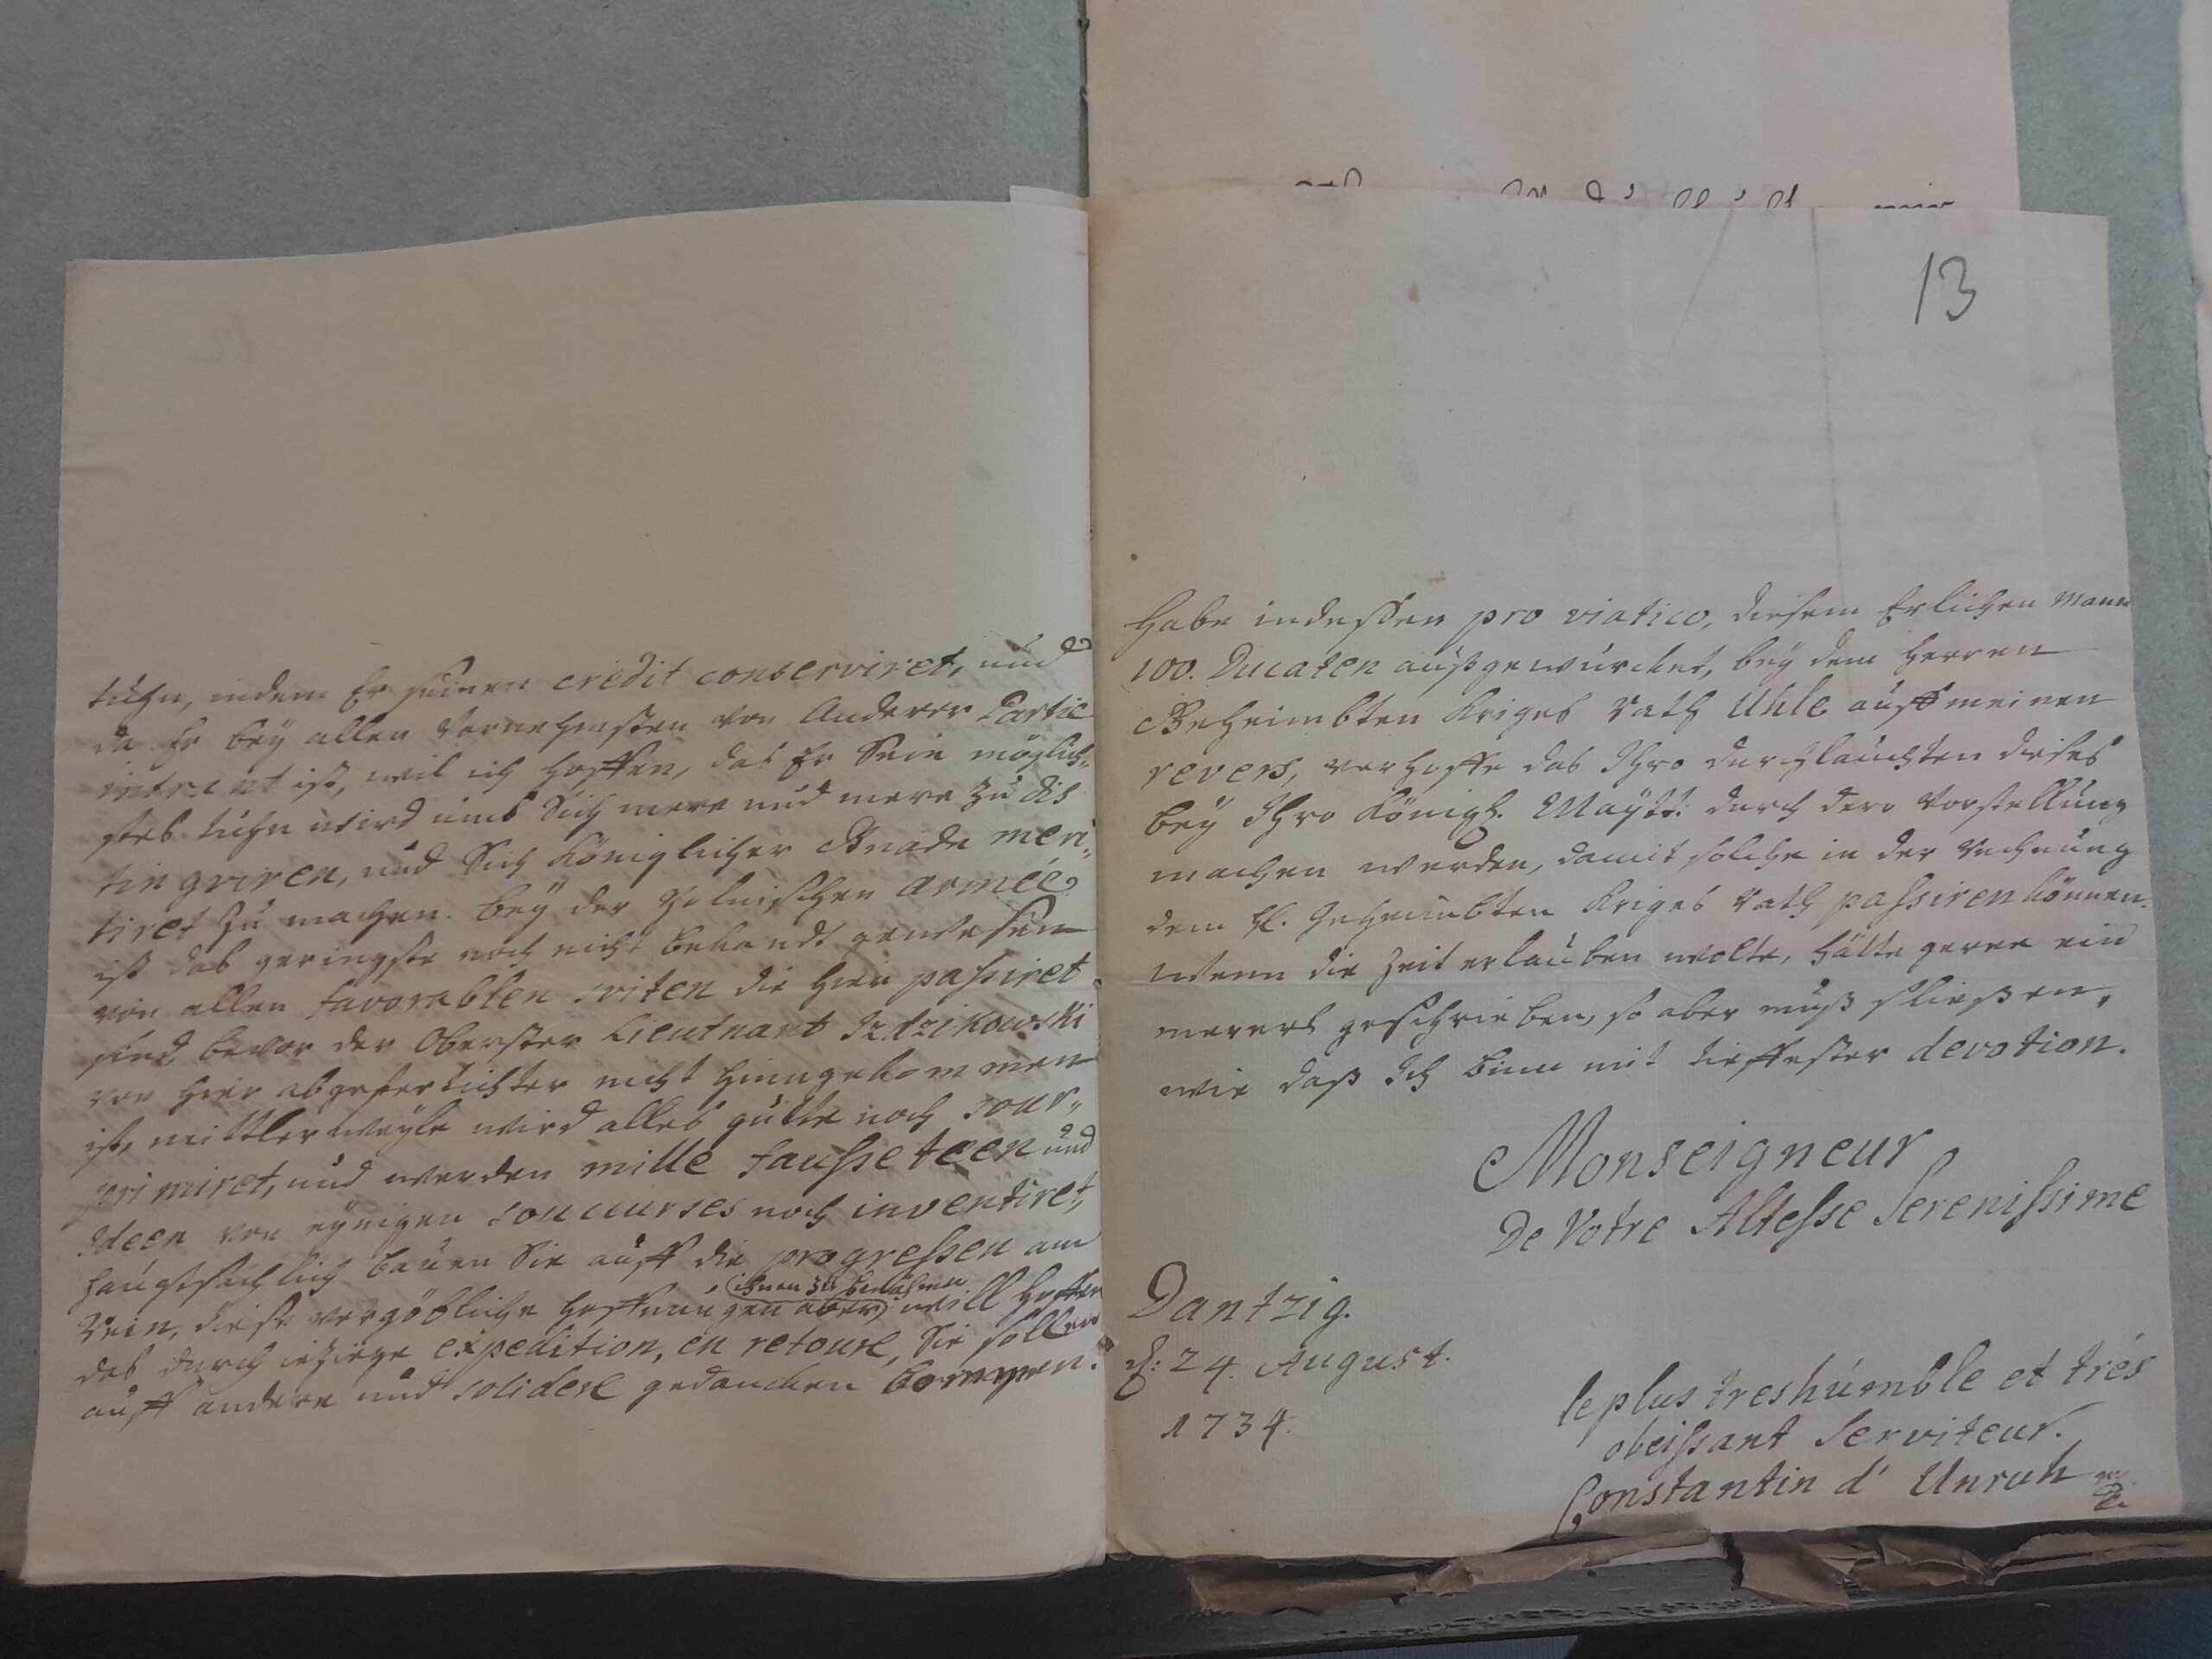 tuhn, indem Er seinen credit conserviret, und
da Er bey allen Vornehmsten von Anderer Partie
intrant ist, wil ich hoffen, das Er Sein möglich„
stes tuhn wird umb Sich mere und mere zu dis
tingviren, und Sich Königlicher Gnade meri„
tiret zu machen. bey der Polnischen armée
ist das geringste noch nicht bekandt gewesen
von allen favorablen sviten die hier passiret
sind, bevor der Oberster Lieutnant Izdzikowski
von hier abgefertichter nicht hinngekommen
ist, mittlerweyle wird alles gutte noch sour„
primiret, und werden mille fausseteen und
Ideen von eynigen soucurses noch inventiret,
haugtsechlich bauen Sie auff die progressen am
Rein, diese vergöbliche hoffnungen aber ihnen zu benähmen will hoffen
das durch ietzige expedition, en retour, Sie sollen
auff andere und solidere gedancken kommen.
13
habe indessen pro viatico, diesem Erlichen Mann
100. Ducaten außgewürcket, bey dem Herren
Geheimbten Kriges Rath Uhle auff meinen
revers, verhoffe das Ihro durchlauchten dieses
bey Ihro Königl. Mayst: durch dero Vorstellung
machen werden, damit solche in der Rechnung
dem H. Geheimbten Kriges Rath passiren können.
wenn die Zeit erlauben wolte, hätte gerne ein
merers geschrieben, so aber muß schließen,
wie daß Ich binn mit tieffester devotion.
Monseigneur
De Votre Altesse Serenissime
Dantzig.
d: 24. August.
1734.
le plus treshumble et trés
obeissant Serviteur.
Constantin d' Unruh